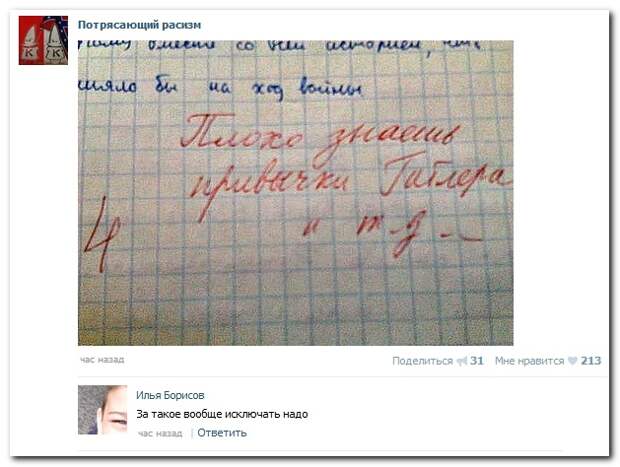 Потрясающий расизм
К К
вместе со всей историей, что
бы на ход войны
Плохо знаешь
привычки Гитлера
4 и т.д...
час назад Поделиться 31 Мне нравится 213
Илья Борисов
За такое вообще исключать надо
час назад | Ответить